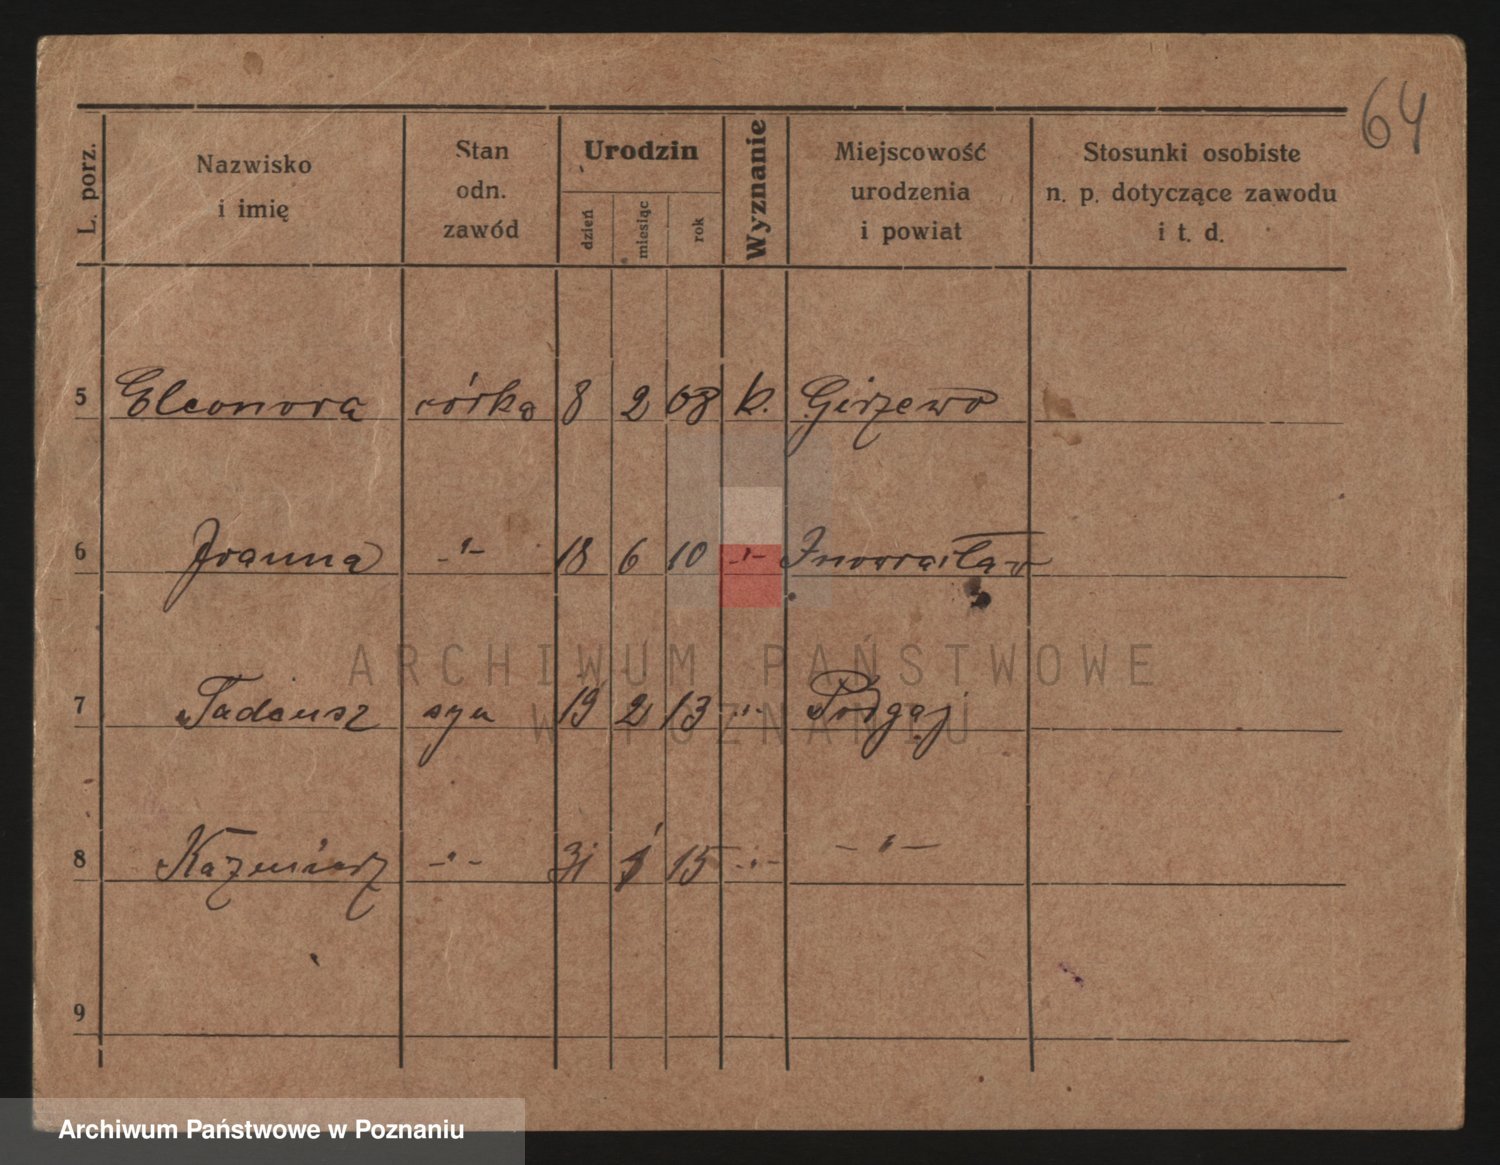 64
L. porz.
Nazwisko
i imię
Stan
odn.
zawód
Urodzin
dzień
miesiąc
rok
Wyznanie
Miejscowość
urodzenia
i powiat
Stosunki osobiste
n. p. dotyczące zawodu
i t. d.
5 Eleonora córka 8 2 08 k. Girzewo
6 Joanna -"- 18 6 10 -"- Inowrocław
7 Tadeusz syn 19 2 13 -"- Podgaj
8 Kazimierz -"- 31 1 15 -"- -"-
9
ARCHIWUM PAŃSTWOWE
W POZNANIU
Archiwum Państwowe w Poznaniu